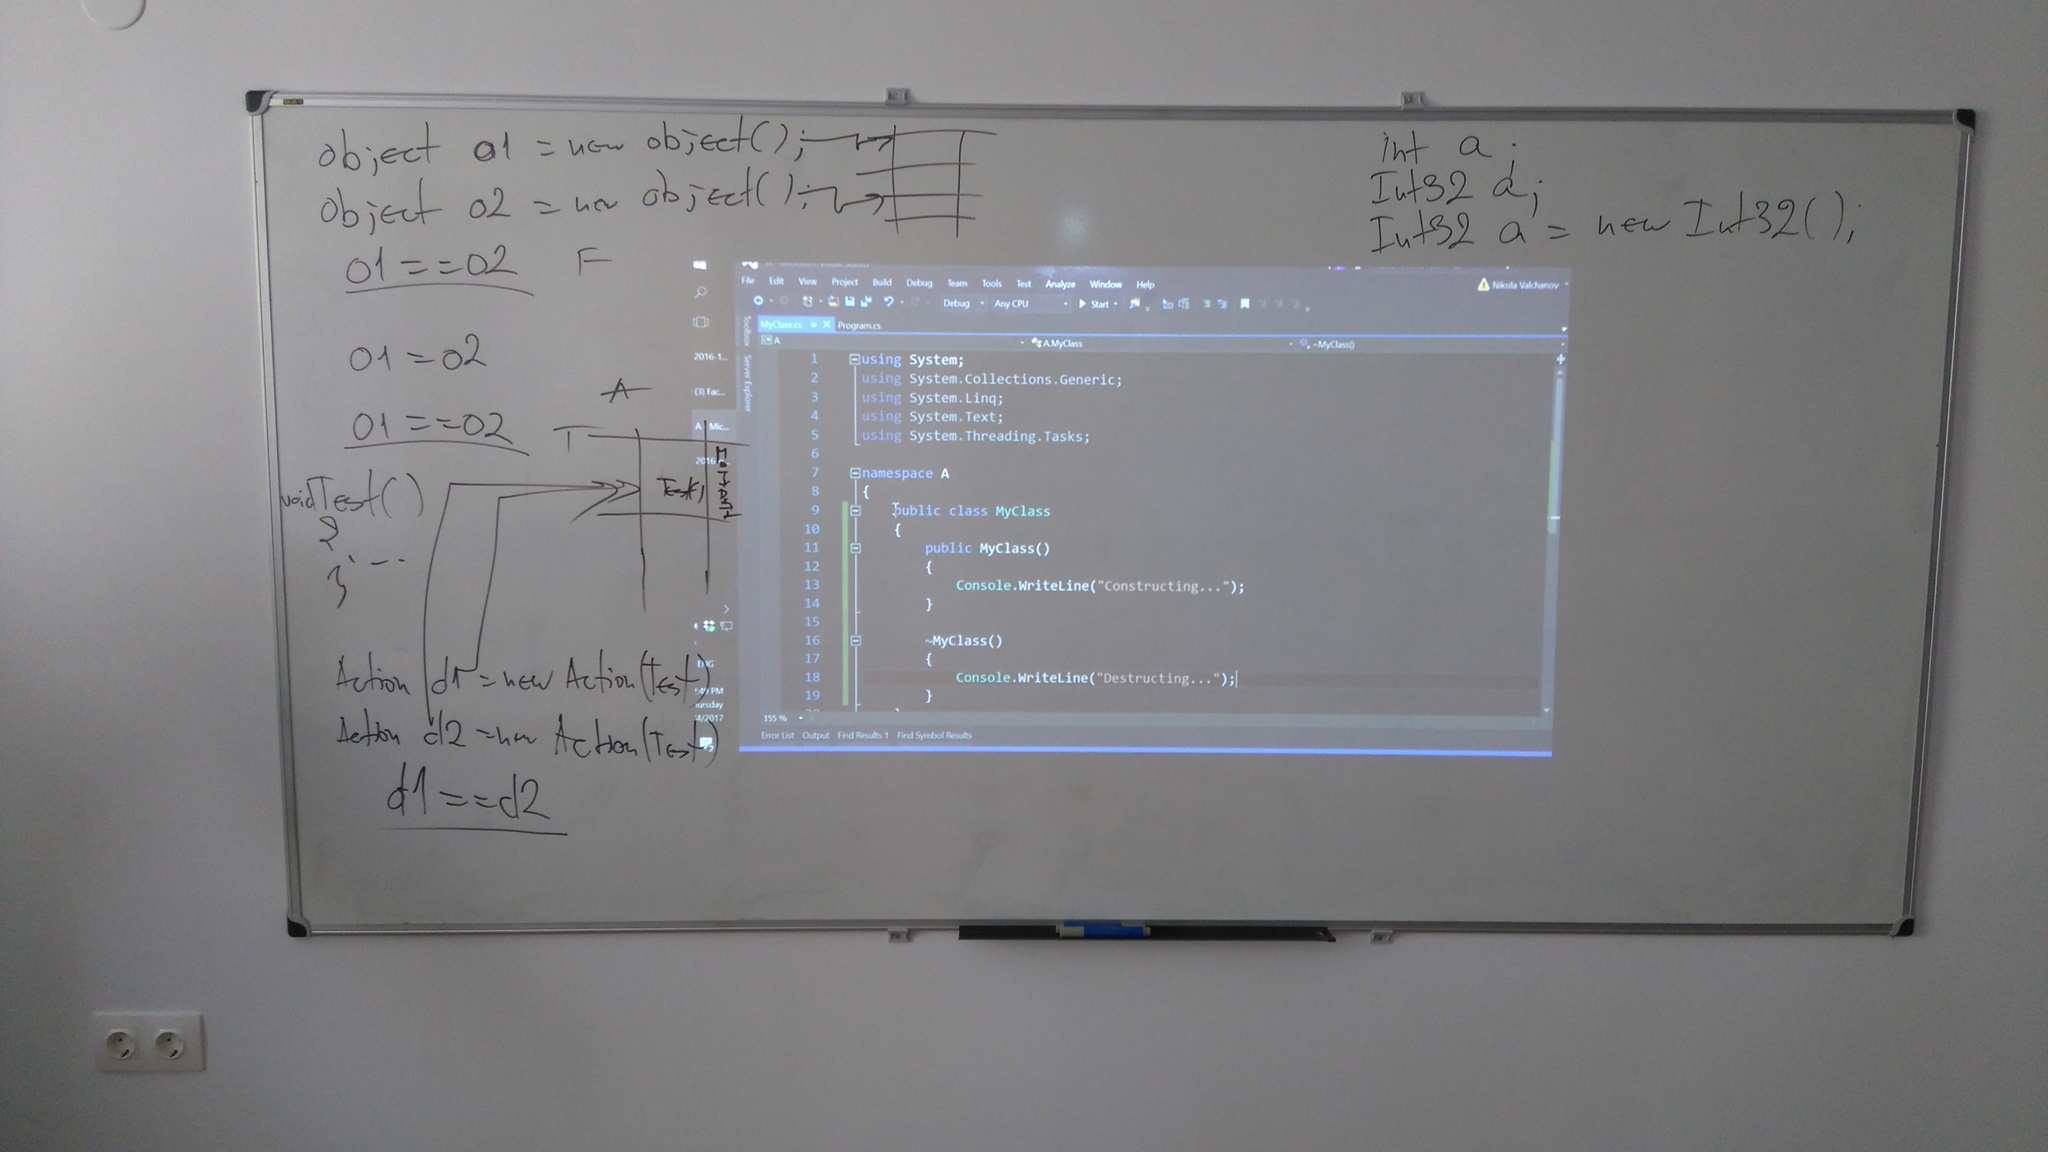 object o1 = new object();
object o2 = new object();
o1 == o2 F
o1 = o2
o1 == o2
A
T
void Test()
Test,
Action d1 = new Action(Test)
Action d2 = new Action(Test)
d1 == d2
int a;
Int32 a;
Int32 a = new Int32();
File Edit View Project Build Debug Team Tools Test Analyze Window Help
Nikola Valchanov
Debug Any CPU Start
MyClass.cs Program.cs
A A.MyClass ~MyClass()
Toolbox
Server Explorer
2016-1...
(3) Fac...
A Mic...
2016-
ENG
:49 PM
ursday
/4/2017
1 using System;
2 using System.Collections.Generic;
3 using System.Linq;
4 using System.Text;
5 using System.Threading.Tasks;
6
7 namespace A
8 {
9 public class MyClass
10 {
11 public MyClass()
12 {
13 Console.WriteLine("Constructing...");
14 }
15
16 ~MyClass()
17 {
18 Console.WriteLine("Destructing...");
19 }
155 %
Error List Output Find Results 1 Find Symbol Results